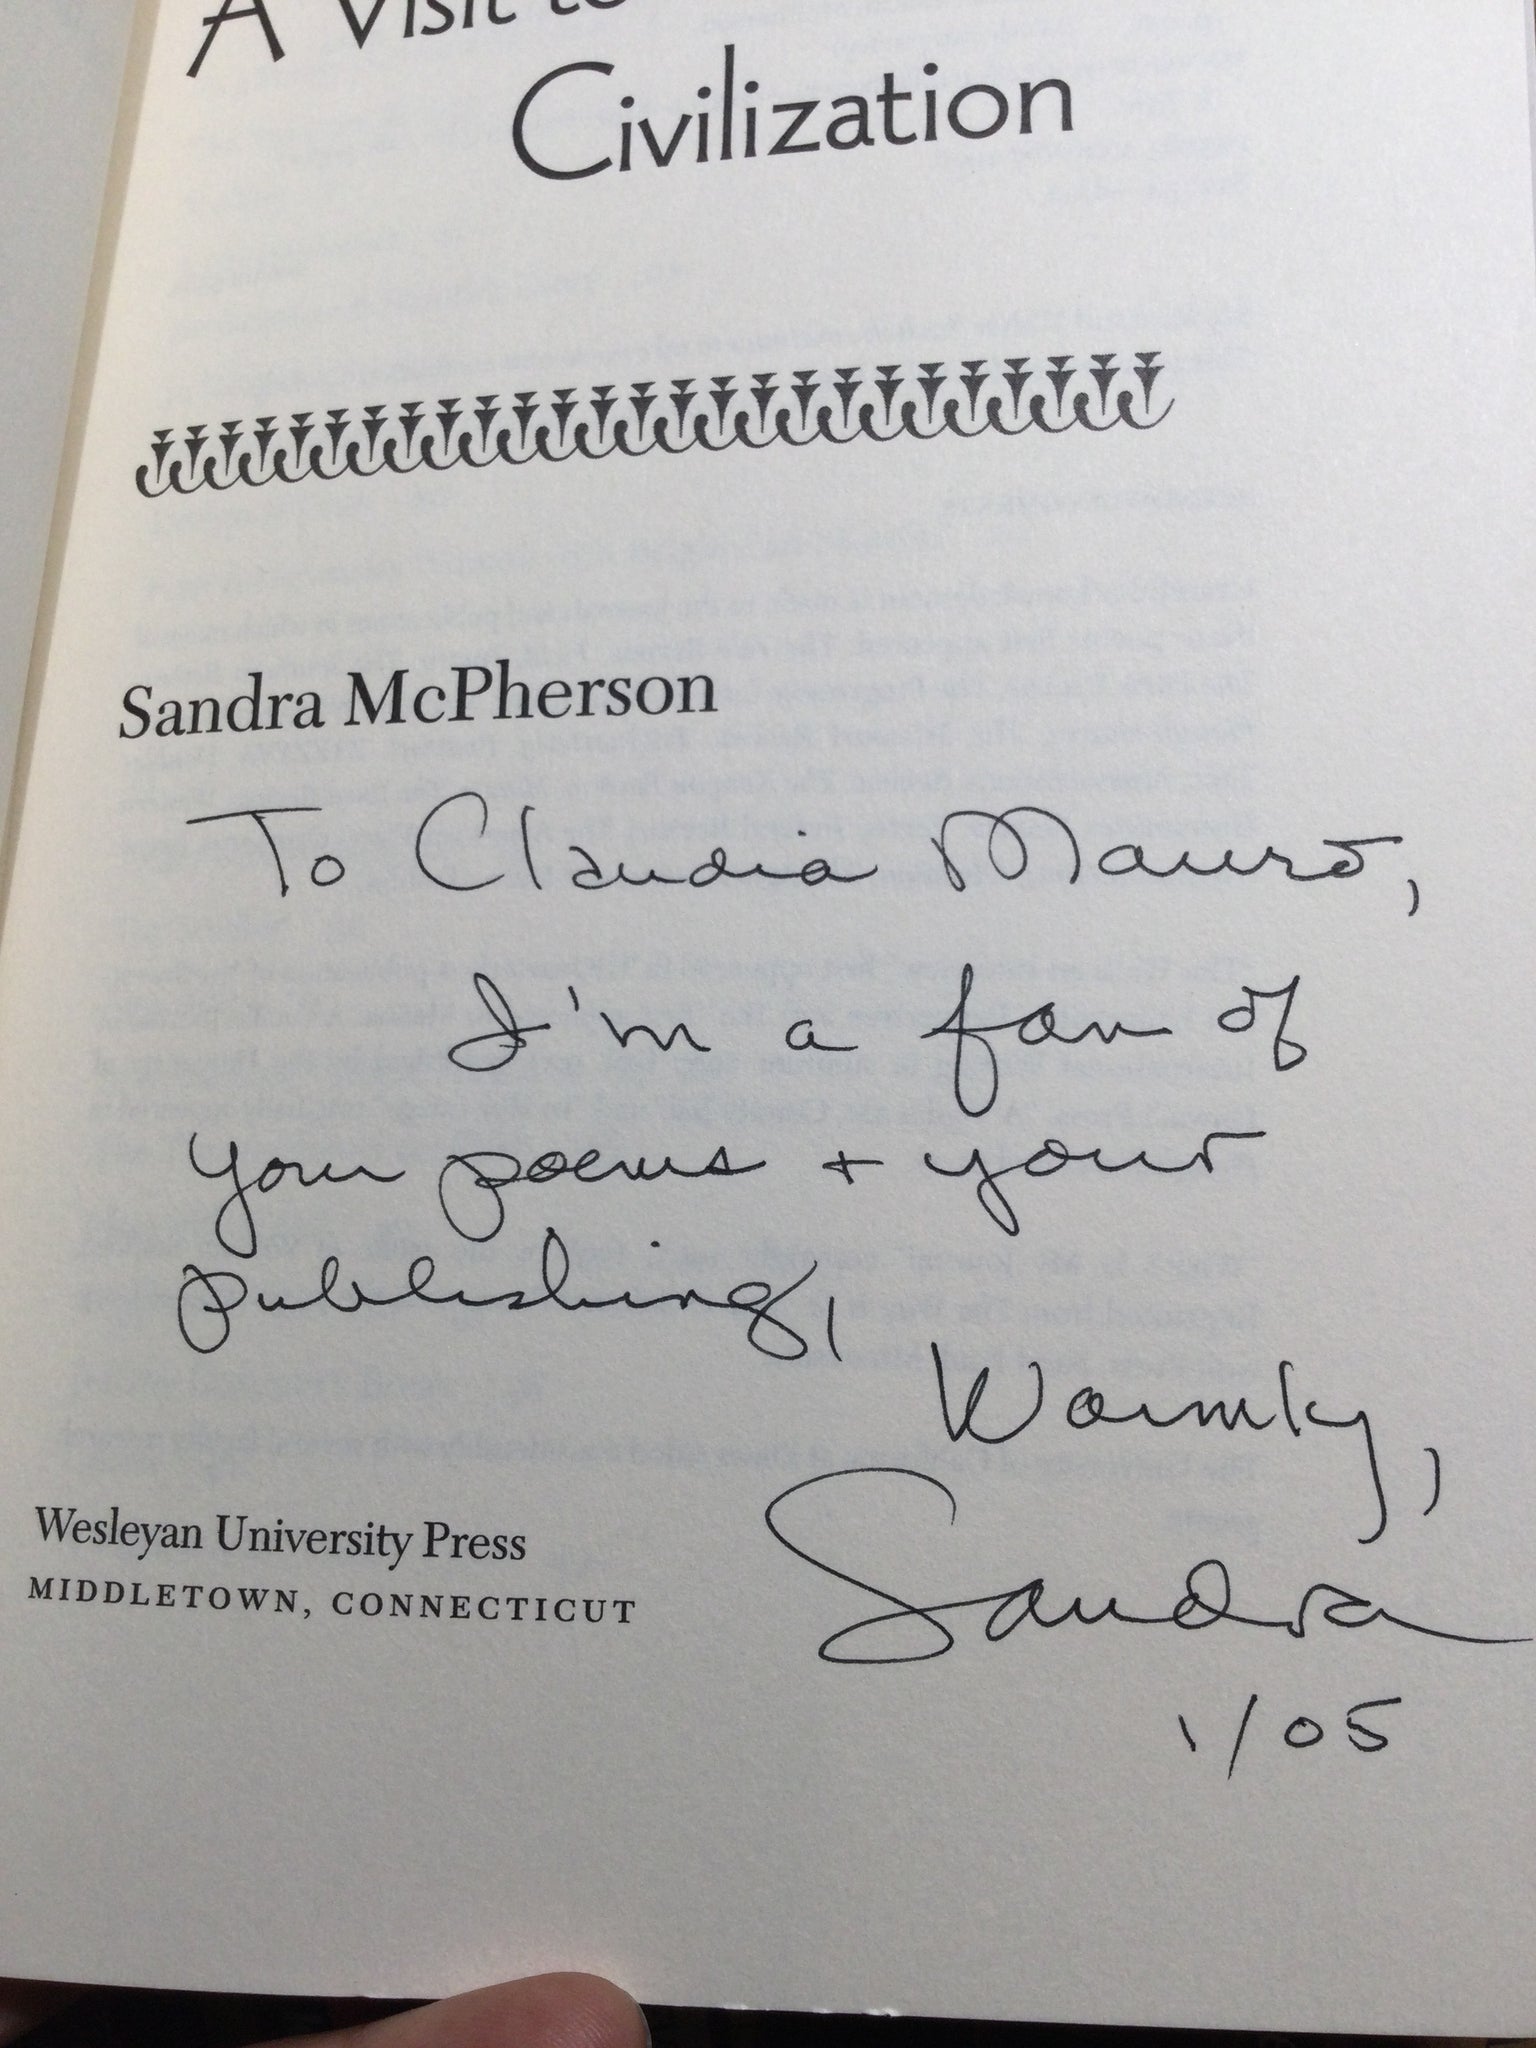 A Visit to
Civilization
Sandra McPherson
To Claudia Mauro,
I'm a fan of
your poems + your
publishing,
Warmly,
Sandra
1/05
Wesleyan University Press
MIDDLETOWN, CONNECTICUT